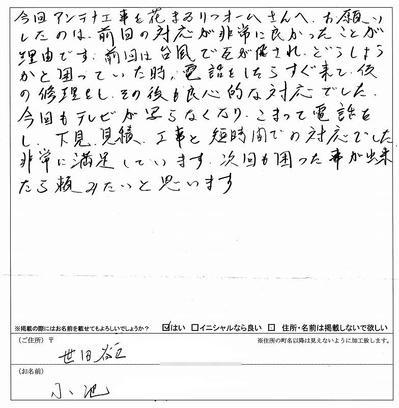 今回アンテナ工事を花まるリフォームさんへお願い
したのは、前回の対応が非常に良かったことが
理由です。前回は台風で瓦が飛され、どうしよう
かと困っていた時、電話をしたらすぐ来て、後
の修理をし、その後も良心的な対応でした。
今回もテレビが写らなくなり、こまって電話を
し、下見、見積、工事と短時間での対応でした
非常に満足しています。次回も困った事が出来
たら頼みたいと思います
※掲載の際にはお名前を載せてもよろしいでしょうか? ☑はい □イニシャルなら良い □ 住所・名前は掲載しないで欲しい
(ご住所) 〒 ※住所の町名以降は見えないように加工致します。
世田谷区
(お名前)
小池